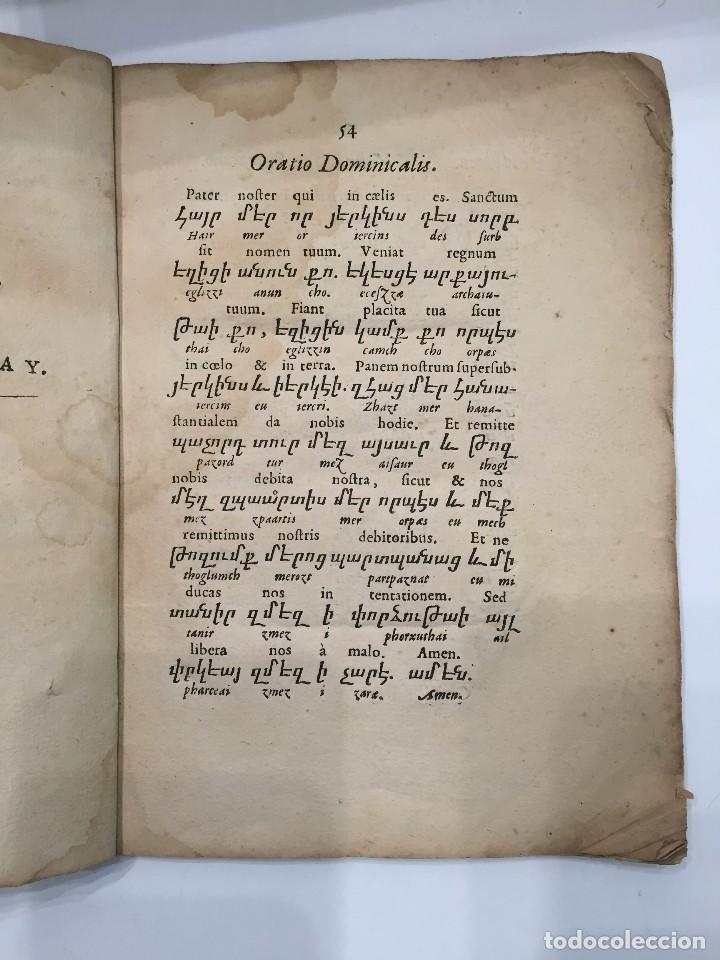 A Y.
54
Oratio Dominicalis.
Pater noſter qui in cælis es. Sanctum
Հայր մեր որ յերկինս դես սորբ
Hair mer or iercins des ſurb
ſit nomen tuum. Veniat regnum
եղիցի անուն քո. եկեսցէ արքայու-
eglizzi anun cho. eceſzzæ archaiu-
tuum. Fiant placita tua ſicut
թաի քո, եղիցին կամք քո որպէս
thai cho eglizzin camch cho orpæs
in cœlo & in terra. Panem noſtrum ſuperſub-
յերկինս և իերկէի. զՀաց մեր Հանա-
iercins eu iercri. Zhazt mer hana-
ſtantialem da nobis hodie. Et remitte
պաչորդ տուր մեզ այսաւր և թող
pazord tur mez aiſaur eu thogl
nobis debita noſtra, ſicut & nos
մէղ զպաարտիս մեր որպէս և մեք
mez zpaartis mer orpæs eu mech
remittimus noſtris debitoribus. Et ne
թողումք մերոց պարտպանաց և մի
thoglumch merozt partpaznat eu mi
ducas nos in tentationem. Sed
տանիր զմեզ ի փորձութաի այլ
tanir zmez i phorxuthai ail
libera nos à malo. Amen.
փրկեայ զմեզ ի չարէ. ամէն.
pharceai zmez i zaræ. Amen.
todocoleccion